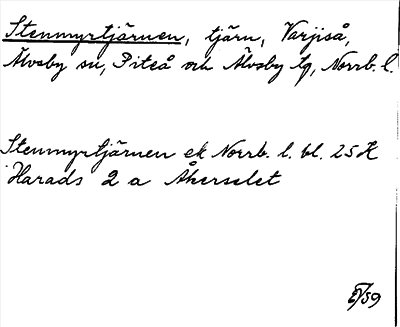 Stenmyrtjärnen, tjärn, Varjiså,
Älvsby sn, Piteå och Älvsby tg, Norrb. l.
Stenmyrtjärnen ek Norrb. l. bl. 25 K
Harads 2 a Åkerselet